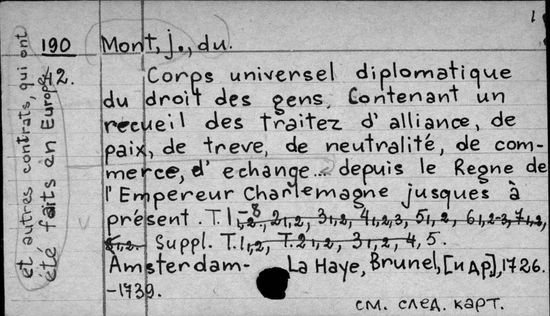 1
190 Mont, j., du.
42.
Corps universel diplomatique
du droit des gens. Contenant un
recueil des traitez d'alliance, de
paix, de treve, de neutralité, de com-
merce, d'echange... depuis le Regne de
l'Empereur Charlemagne jusques à
présent. T. 1-8 1,2, 2 1,2, 3 1,2, 4 1,2,3, 5 1,2, 6 1,2-3, 7 1,2,
8 1,2. Suppl. T. 1 1,2, T. 2 1,2, 3 1,2, 4, 5.
Amsterdam- La Haye, Brunel, [и др.], 1726.
-1739.
см. след. карт.
et autres contrats, qui ont
été faits en Europe